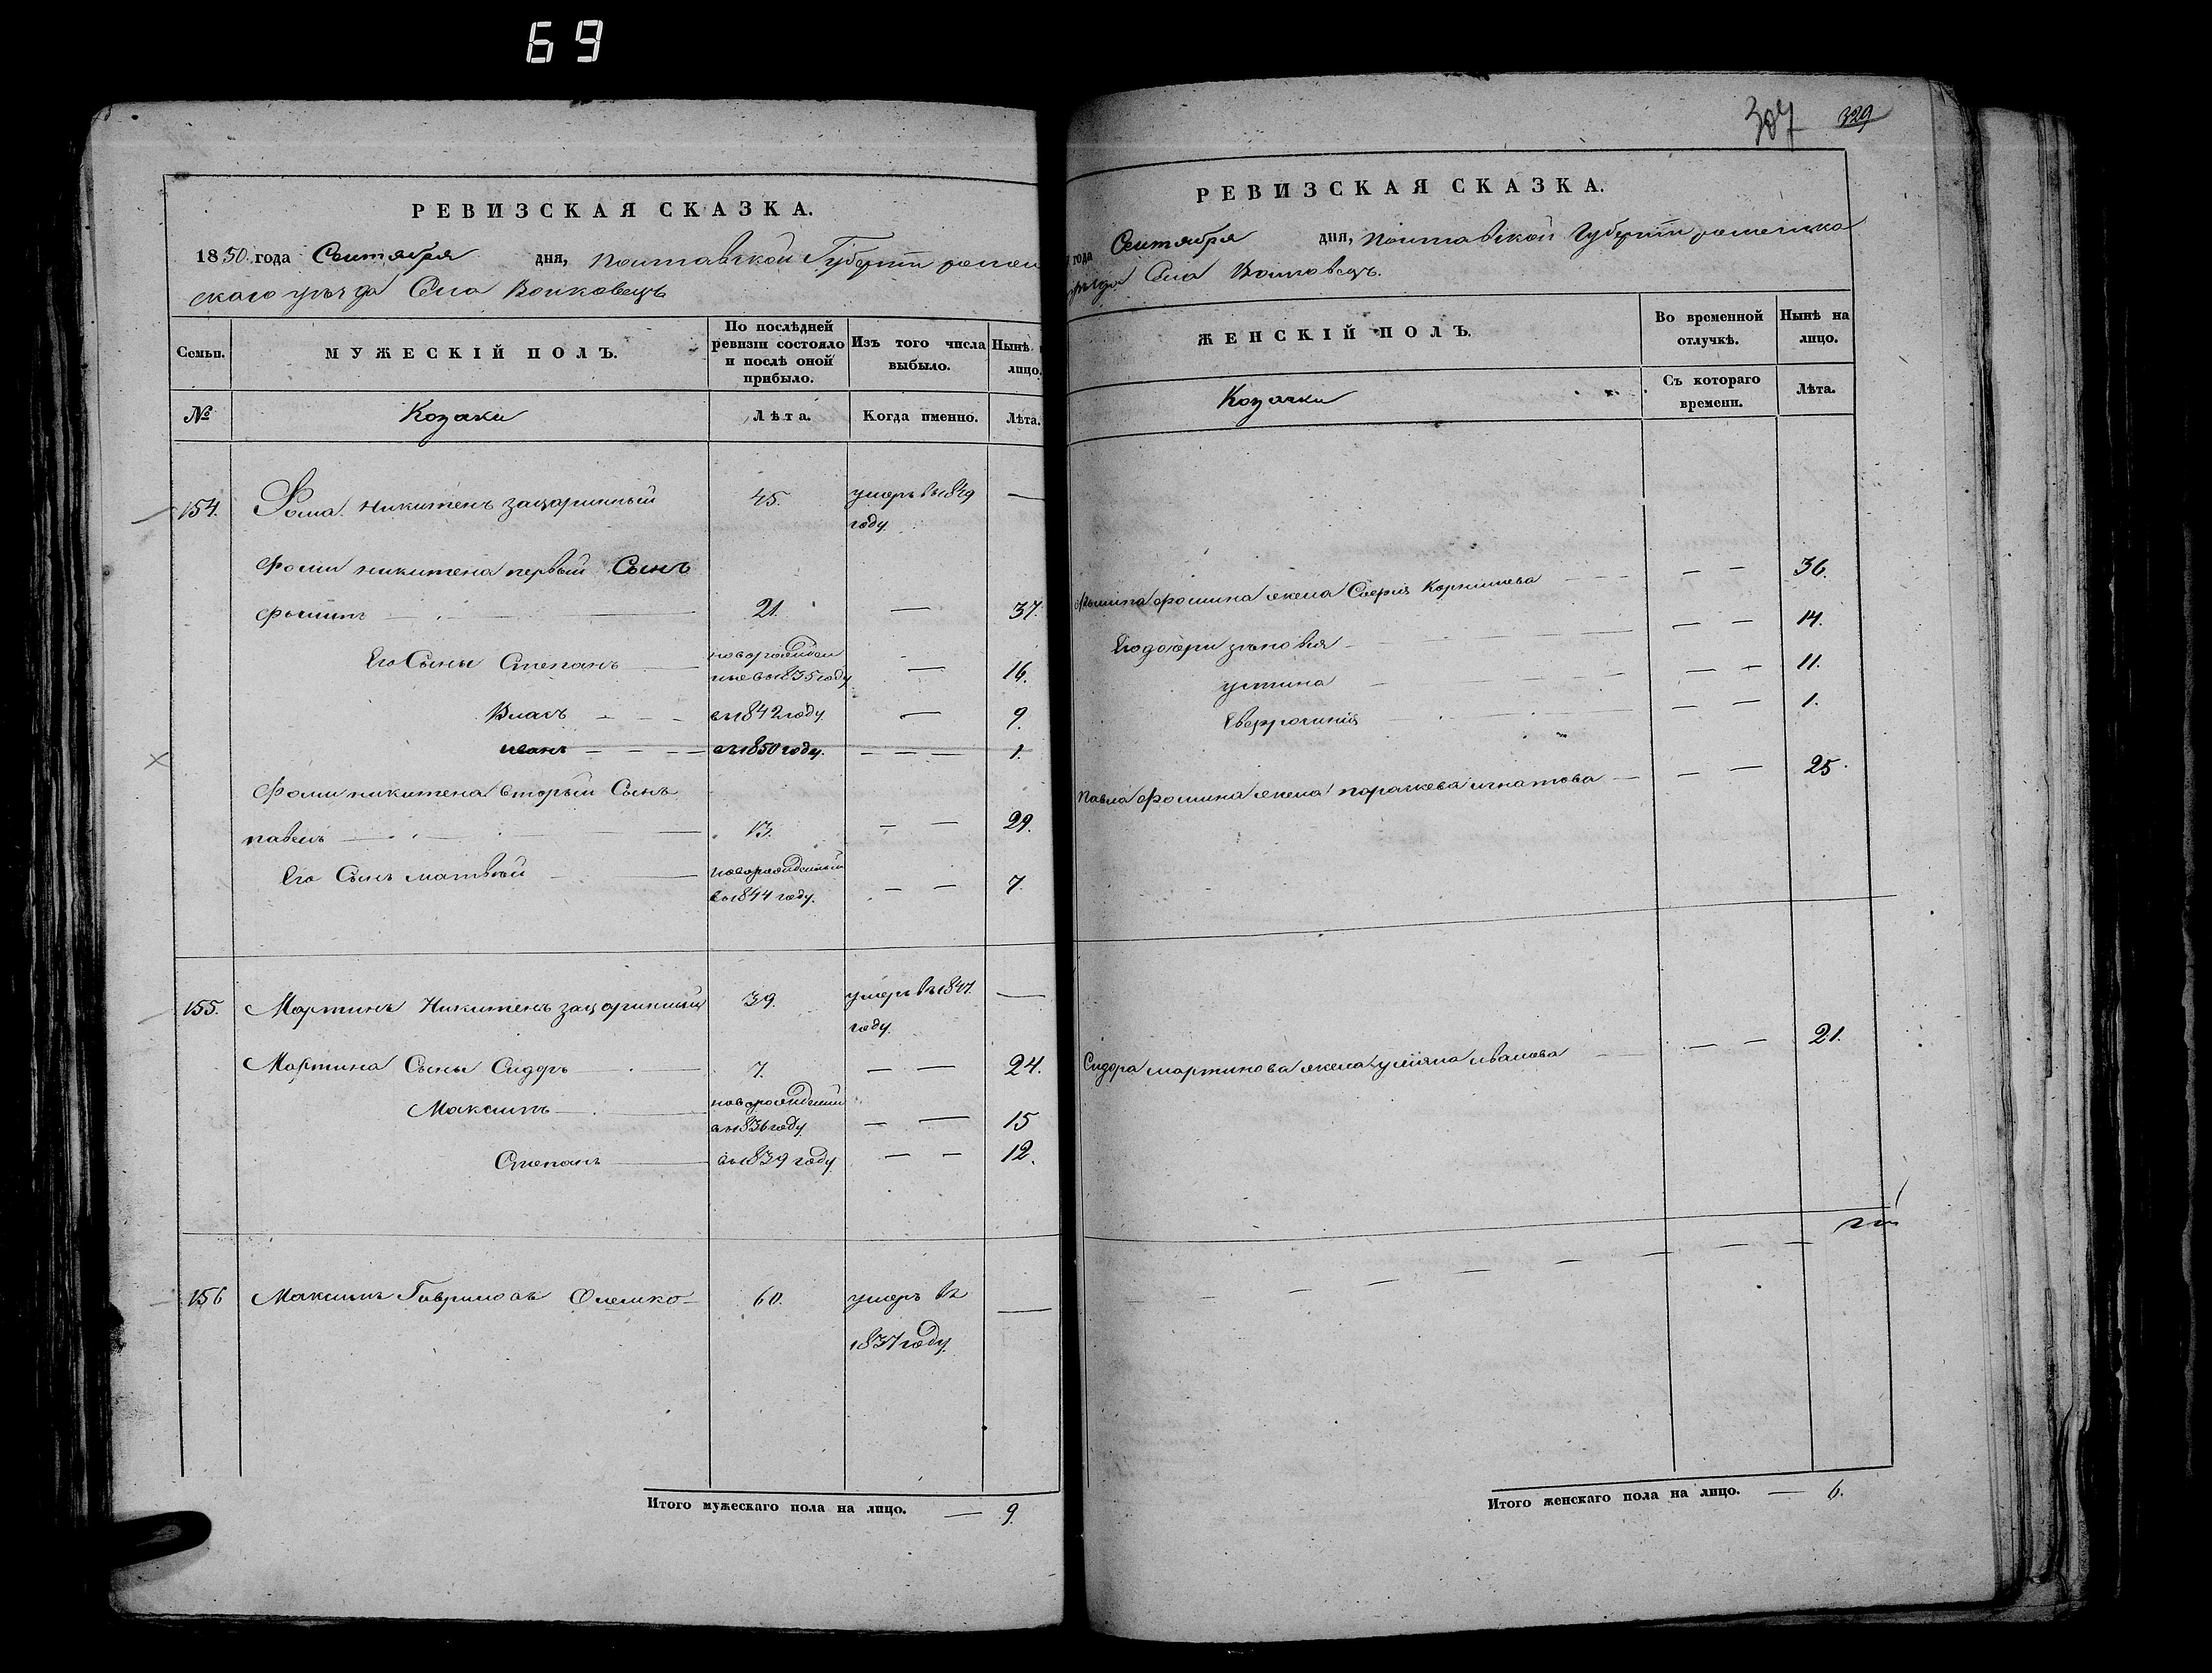 69
РЕВИЗСКАЯ СКАЗКА.
1850 года Сентября дня, Полтавской Губерніи ромен
скаго уѣзда Села Волковецъ
Семьи.
МУЖЕСКІЙ ПОЛЪ.
По послѣдней ревизіи состояло и послѣ оной прибыло.
Изъ того числа выбыло.
Нынѣ
лицо.
№
Козаки
Лѣта.
Когда именно.
Лѣта.
154. Фома Никитенъ зацаринный 45. умеръ въ 1849 —
году
Фомы никитена первый Сынъ
Филипъ 21. — 37.
Его Сыны Степанъ новорожден
ные въ 1835 году — 16.
Власъ въ 1842 году — 9.
иванъ въ 1850 году. — 1.
Фомы никитена вторый Сынъ
павелъ 13. — — 29.
Его Сынъ матвѣй новорожденный
въ 1844 году. — — 7.
155. Мартинъ Никитенъ зацаринный 39. умеръ въ 1847. —
году.
Мартина Сыны Сидоръ 7. — — 24.
Максимъ новорожденный
въ 1836 году — — 15
Степанъ въ 1839 году — — 12.
156 Максимъ Гавриловъ Олешко 60. умеръ въ —
1837 году
Итого мужескаго пола на лицо. — 9.
307 329
РЕВИЗСКАЯ СКАЗКА.
года Сентября дня, Полтавской Губерніи роменска
уѣзда Села Волковецъ.
ЖЕНСКІЙ ПОЛЪ.
Во временной отлучкѣ.
Нынѣ на лицо.
Козачки
Съ котораго времени.
Лѣта.
Филипа фомина жена Софія Корнилова — — 36.
Его дочери зѣновія — — 14.
устина — — 11.
Евфросинія — — 1.
Павла фомина жена параскева игнатова — — 25.
Сидора мартинова жена уліяна иванова — — 21.
Итого женскаго пола на лицо. — 6.